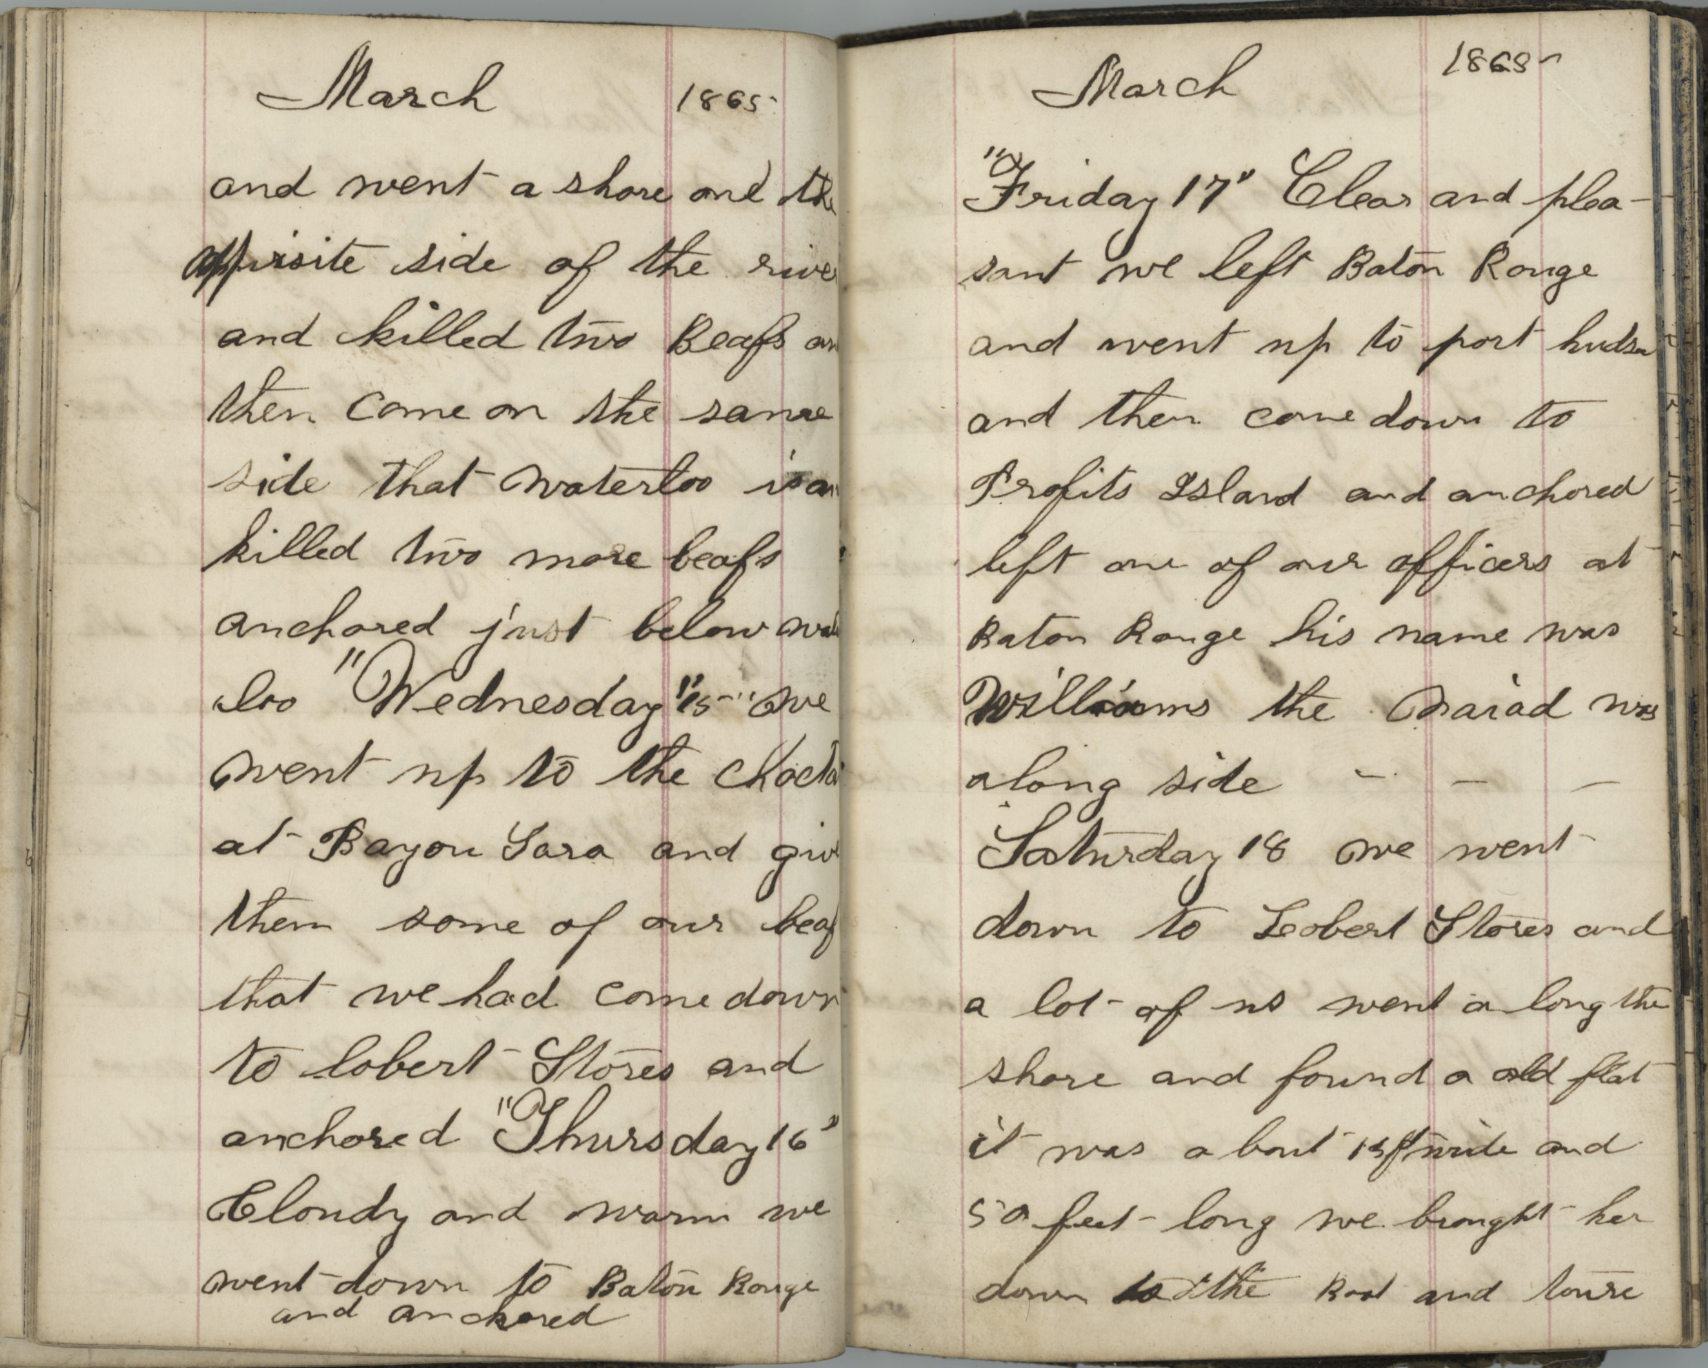 March 1865
and went a shore one the
oppisite side of the river
and killed two Beafs an
then come on the same
side that waterloo is an
killed two more beafs
anchored just below wat
loo "Wednesday "15" we
went up to the Chocta
at Bayou Sara and giv
them some of our beaf
that we had come down
to lobert Stores and
anchored "Thursday 16"
Cloudy and warm we
went down to Baton Rouge
and anchored
March 1865
"Friday 17" Clear and plea-
sant we left Baton Rouge
and went up to port hudson
and then come down to
Profits Island and anchored
left one of our officers at
Baton Rouge his name was
Williams the Naiad was
along side - - -
Saturday 18 we went
down to Lobert Stores and
a lot of us went a long the
shore and found a old flat
it was a bout ft wide and
50 feet long we brought her
down to the Boat and toure